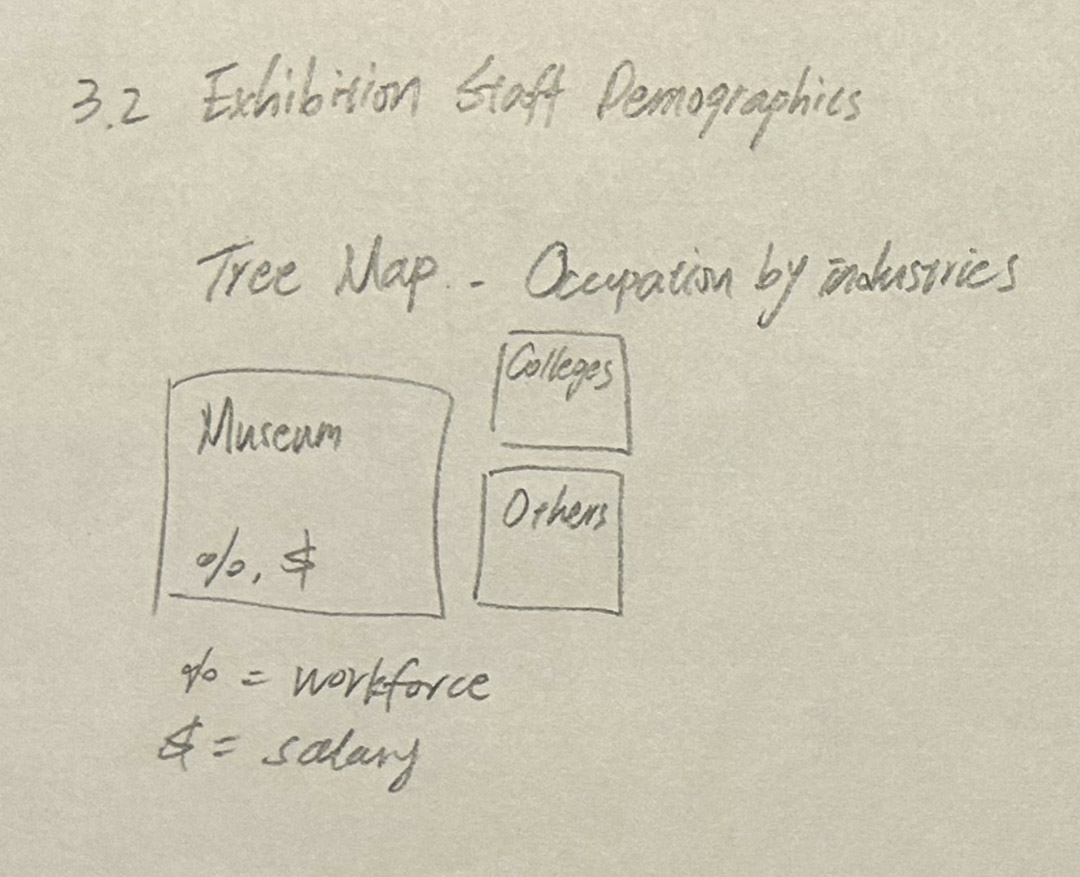 3.2 Exhibition Staff Demographics
Tree Map - Occupation by industries
Colleges
Museum
Others
%, $
% = workforce
$ = salary